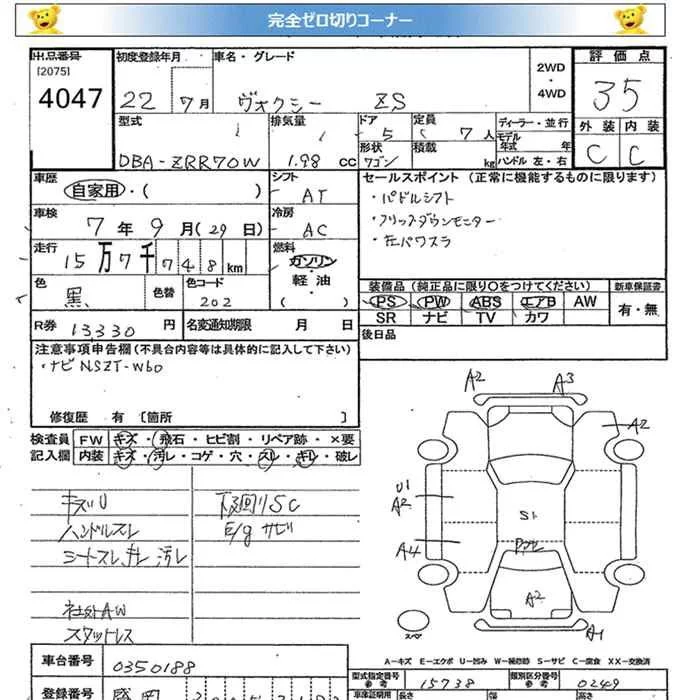 完全ゼロ切りコーナー
出品番号
[2075]
4047
初度登録年月
22年 7月
車名・グレード
ヴォクシー ZS
2WD
・
4WD
評価点
35
外装 内装
C C
型式
DBA-ZRR70W
排気量
1.98 CC
ドア
5
形状
ワゴン
定員
7人
積載
kg
ディーラー・並行
モデル
年式 年
ハンドル 左・右
車歴
自家用・( )
シフト
AT
セールスポイント (正常に機能するものに限ります)
・パドルシフト
・フリップダウンモニター
・左パワスラ
車検
7年 9月(29日)
冷房
AC
走行
15万7千748km
燃料
ガソリン
軽油
( )
色
黒
色替
色コード
202
装備品 (純正品に限り○をつけてください)
PS PW ABS エアB AW
SR ナビ TV カワ
新車保証書
有・無
R券 13330 円
名変通知期限 月 日
後日品
注意事項申告欄(不具合内容等は具体的に記入して下さい)
・ナビNSZT-W60
修復歴 有 [箇所 ]
検査員
記入欄
FW キズ・飛石・ヒビ割・リペア跡・×要
内装 キズ・汚レ・コゲ・穴・スレ・キレ・破レ
キズU
ハンドルスレ
シートスレ、キレ、汚レ
社外AW
スタットレス
下廻りSC
E/gサビ
A2 A3
A2
U1
A2
S1
A4
A2
A1
スペア
A-キズ E-エクボ U-凹み W-補修跡 S-サビ C-腐食 XX-交換済
車台番号 0350188
型式指定番号
参考
15738
類別区分番号
参考
0249
登録番号 盛岡
車体証明用
長さ
幅
高さ